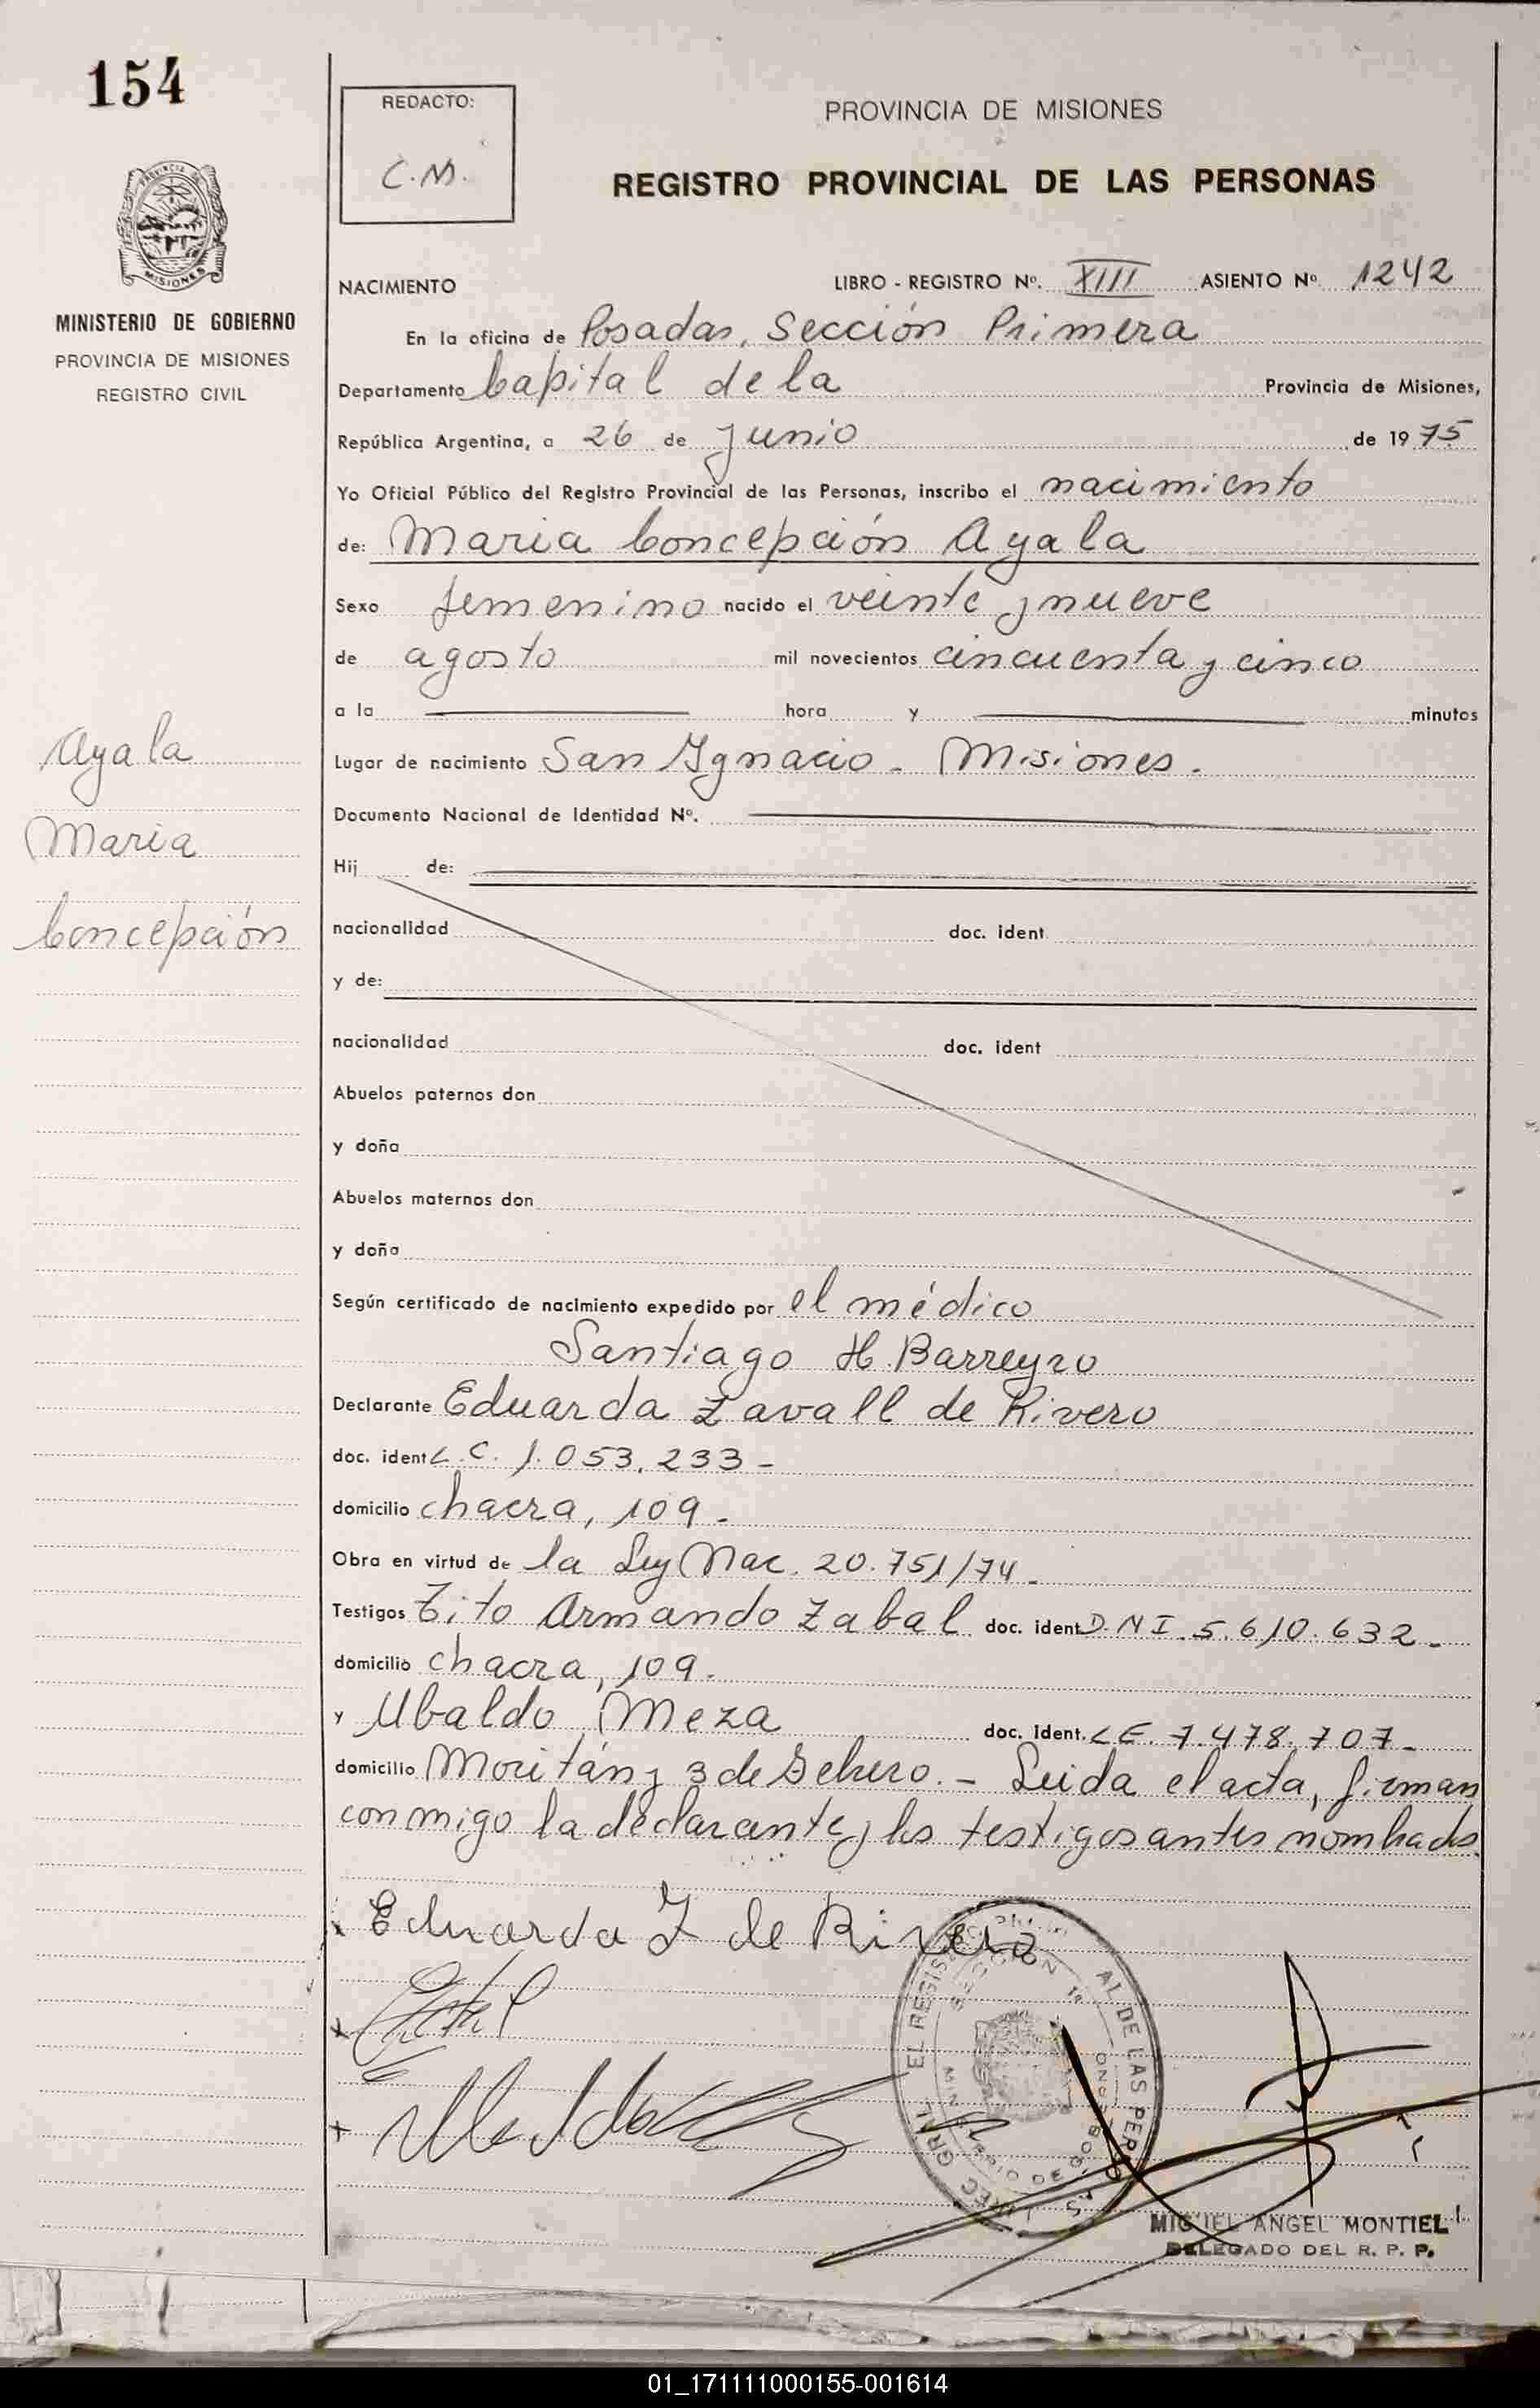 154
REDACTO:
C.M.
PROVINCIA DE MISIONES
REGISTRO PROVINCIAL DE LAS PERSONAS
MISIONES
MINISTERIO DE GOBIERNO
PROVINCIA DE MISIONES
REGISTRO CIVIL
NACIMIENTO LIBRO - REGISTRO Nº. XIII ASIENTO Nº 1242
En la oficina de Posadas, Sección Primera
Departamento Capital de la Provincia de Misiones,
República Argentina, a 26 de Junio de 1975
Yo Oficial Público del Registro Provincial de las Personas, inscribo el nacimiento
de: Maria Concepción Ayala
Sexo femenino nacido el veinte y nueve
de agosto mil novecientos cincuenta y cinco
a la hora y minutos
Ayala
Maria
Concepción
Lugar de nacimiento San Ygnacio - Misiones.
Documento Nacional de Identidad Nº.
Hij de:
nacionalidad doc. ident
y de:
nacionalidad doc. ident
Abuelos paternos don
y doña
Abuelos maternos don
y doña
Según certificado de nacimiento expedido por el médico
Santiago H. Barreyro
Declarante Eduarda Zavall de Rivero
doc. ident L.C. 1.053.233-
domicilio chacra, 109.-
Obra en virtud de la Ley Nac. 20.751/74.-
Testigos Tito Armando Zabal doc. ident D.N.I. 5.610.632.-
domicilio chacra, 109.
y Ubaldo Meza doc. Ident. L.E. 7.478.707-
domicilio Moritán y 3 de Febrero.- Leida el acta, firman
conmigo la declarante y los testigos antes nombrados.
Eduarda Z de Rivero
MIGUEL ANGEL MONTIEL
DELEGADO DEL R. P. P.
01_171111000155-001614